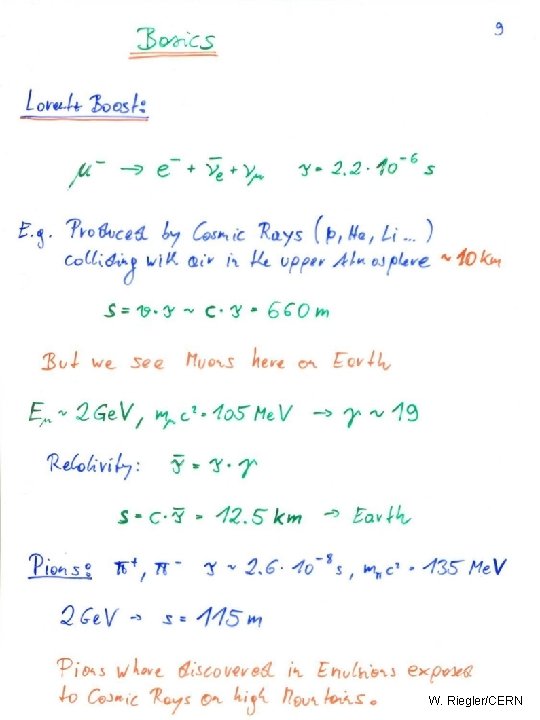 9
Basics
Lorentz Boost:
μ⁻ → e⁻ + ν̄ₑ + ν_μ   τ = 2.2 · 10⁻⁶ s
E.g. Produced by Cosmic Rays (p, He, Li ...)
colliding with air in the upper Atmosphere ~ 10 km
S = v · τ ~ c · τ = 660 m
But we see Muons here on Earth
E_μ ~ 2 GeV, m_μ c² = 105 MeV → γ ~ 19
Relativity: τ̄ = τ · γ
s = c · τ̄ = 12.5 km → Earth
Pions: π⁺, π⁻ τ ~ 2.6 · 10⁻⁸ s, m_π c² = 135 MeV
2 GeV → s = 115 m
Pions where discovered in Emulsions exposed
to Cosmic Rays on high Mountains.
W. Riegler/CERN